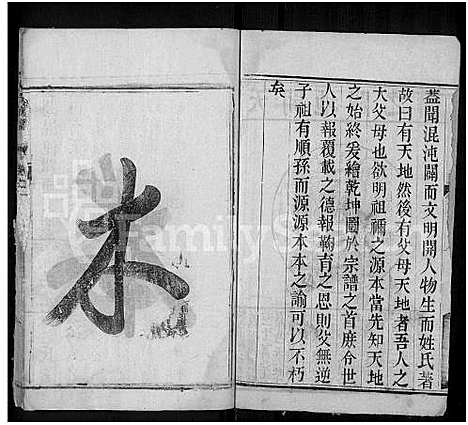 蓋聞混沌闢而文明開人物生而姓氏著
故曰有天地然後有父母天地者吾人之
大父母也欲明祖禰之源本當先知天地
之始爰繪乾坤圖於宗譜之首庶令世
人以報覆載之德報鞠育之恩則父無逆
子祖有順孫而源源本本之諭可以不朽
矣
本
FamilyS